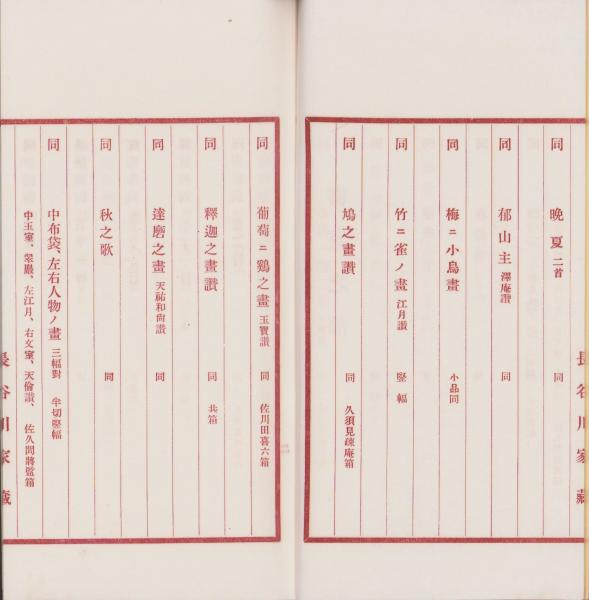 同　晩夏 二首　同
同　郁山主 澤庵讃　同
同　梅ニ小鳥畫　小品同
同　竹ニ雀ノ畫 江月讃　竪幅
同　鳩之畫讃　同　久須見疎庵箱
長谷川家藏
同　葡萄ニ鷄之畫 玉寶讃　同　佐川田喜六箱
同　釋迦之畫讃　同　共箱
同　達磨之畫 天祐和尙讃　同
同　秋之歌　同
同　中布袋、左右人物ノ畫 三幅對　半切竪幅
中玉室、翠巖、左江月、右文室、天倫讃、佐久間將監箱
長谷川家藏